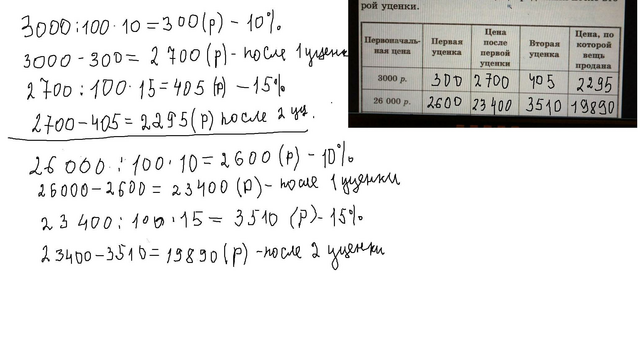 3000:100·10=300(р)-10%
3000-300=2 700(р)-после 1 уценки
2700:100·15=405(р)-15%
2700-405=2295(р) после 2 уц.
26 000:100·10=2600(р)-10%
26000-2600=23400(р)-после 1 уценки
23 400:100·15=3510 (р)-15%
23400-3510=19890(р)-после 2 уценки
рой уценки.
Первоначаль-
ная цена
Первая
уценка
Цена
после
первой
уценки
Вторая
уценка
Цена, по
которой
вещь
продана
3000 р. 300 2700 405 2295
26 000 р. 2600 23400 3510 19890